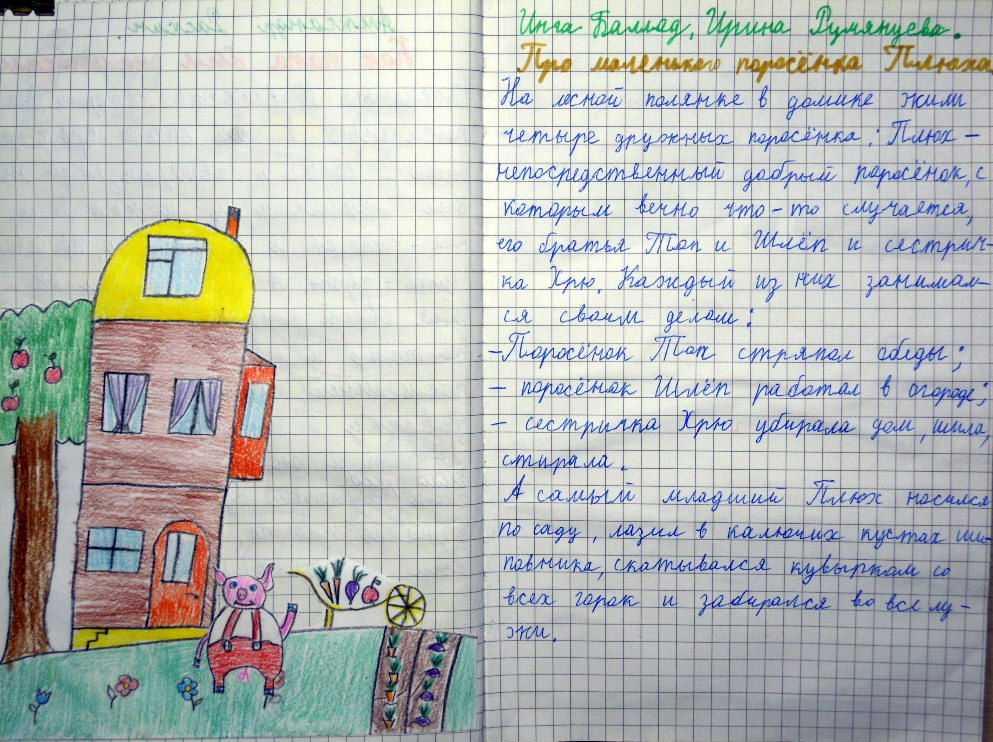 Инга Баллад, Ирина Румянцева.
Про маленького поросёнка Плюха
На лесной полянке в домике жили
четыре дружных поросёнка: Плюх –
непосредственный добрый поросёнок, с
которым вечно что-то случается,
его братья Топ и Шлёп и сестрич-
ка Хрю. Каждый из них занимал-
ся своим делом:
– Поросёнок Топ стряпал обеды;
– поросёнок Шлёп работал в огороде;
– сестричка Хрю убирала дом, шила,
стирала.
А самый младший Плюх носился
по саду, лазил в калючих кустах ши-
повника, скатывался кувырком со
всех горок и забирался во все лу-
жи.